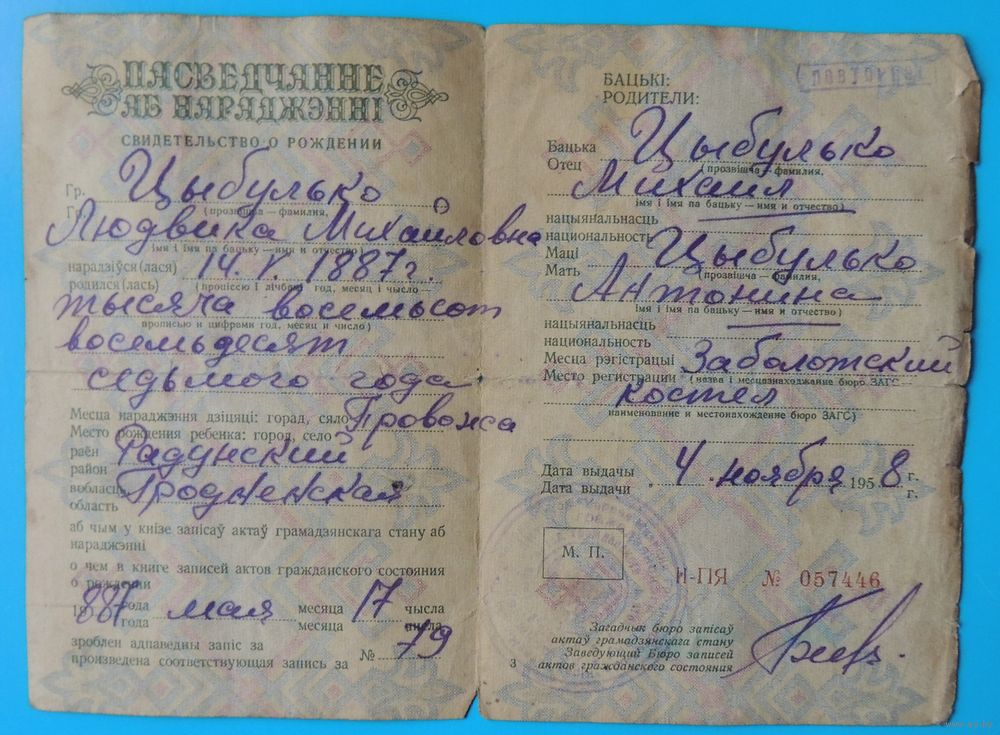 ПАСВЕДЧАННЕ
АБ НАРАДЖЭННІ
СВИДЕТЕЛЬСТВО О РОЖДЕНИИ
Гр. Цыбулько
Гр. (прозвішча — фамилия,
Людвика Михайловна
імя і імя па бацьку — имя и отчество)
нарадзіўся (лася) 14. V. 1887 г.
родился (лась) (прописсю і лічбамі год, месяц і число —
тысяча восемьсот
прописью и цифрами год, месяц и число)
восемьдесят
седьмого года
Месца нараджэння дзіцяці: горад, сяло Провожа
Место рождения ребенка: город, село
раён Радунский
район
вобласць Гродненская
область
аб чым у кнізе запісаў актаў грамадзянскага стану аб
нараджэнні
о чем в книге записей актов гражданского состояния
о рождении
1887 года мая месяца 17 чысла
года месяца числа
зроблен адпаведны запіс за
произведена соответствующая запись за № 79
ПОВТОРНОЕ
БАЦЬКІ:
РОДИТЕЛИ:
Бацька Цыбулько
Отец (прозвішча — фамилия,
Михаил
імя і імя па бацьку — имя и отчество)
нацыянальнасць
национальность
Маці Цыбулько
Мать (прозвішча — фамилия,
Антонина
імя і імя па бацьку — имя и отчество)
нацыянальнасць
национальность
Месца рэгістрацыі Заболотский
Место регистрации (назва і месцазнаходжанне бюро ЗАГС —
костел
наименование и местонахождение бюро ЗАГС)
Дата выдачы 4 ноября 1958 г.
Дата выдачи г.
М. П.
II-ПЯ № 057446
Загадчык бюро запісаў
актаў грамадзянскага стану
Заведующий Бюро записей
актов гражданского состояния
3